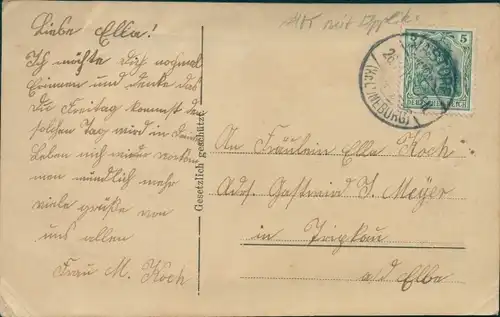 Liebe Ella!
Ich möchte Dich nochmal
Erinnern und denke das
Du Freitag kommst den
solchen Tag wird in Dein
Leben nich wieder vorkom
man mündlich mehr
viele grüße von
uns allen
Frau M. Koch
Gesetzlich geschützt
5
(KR. LÜNEBURG)
An Fräulein Ella Koch
Adr. Gastwird J. Meyer
in Tripkau
a/d Elbe